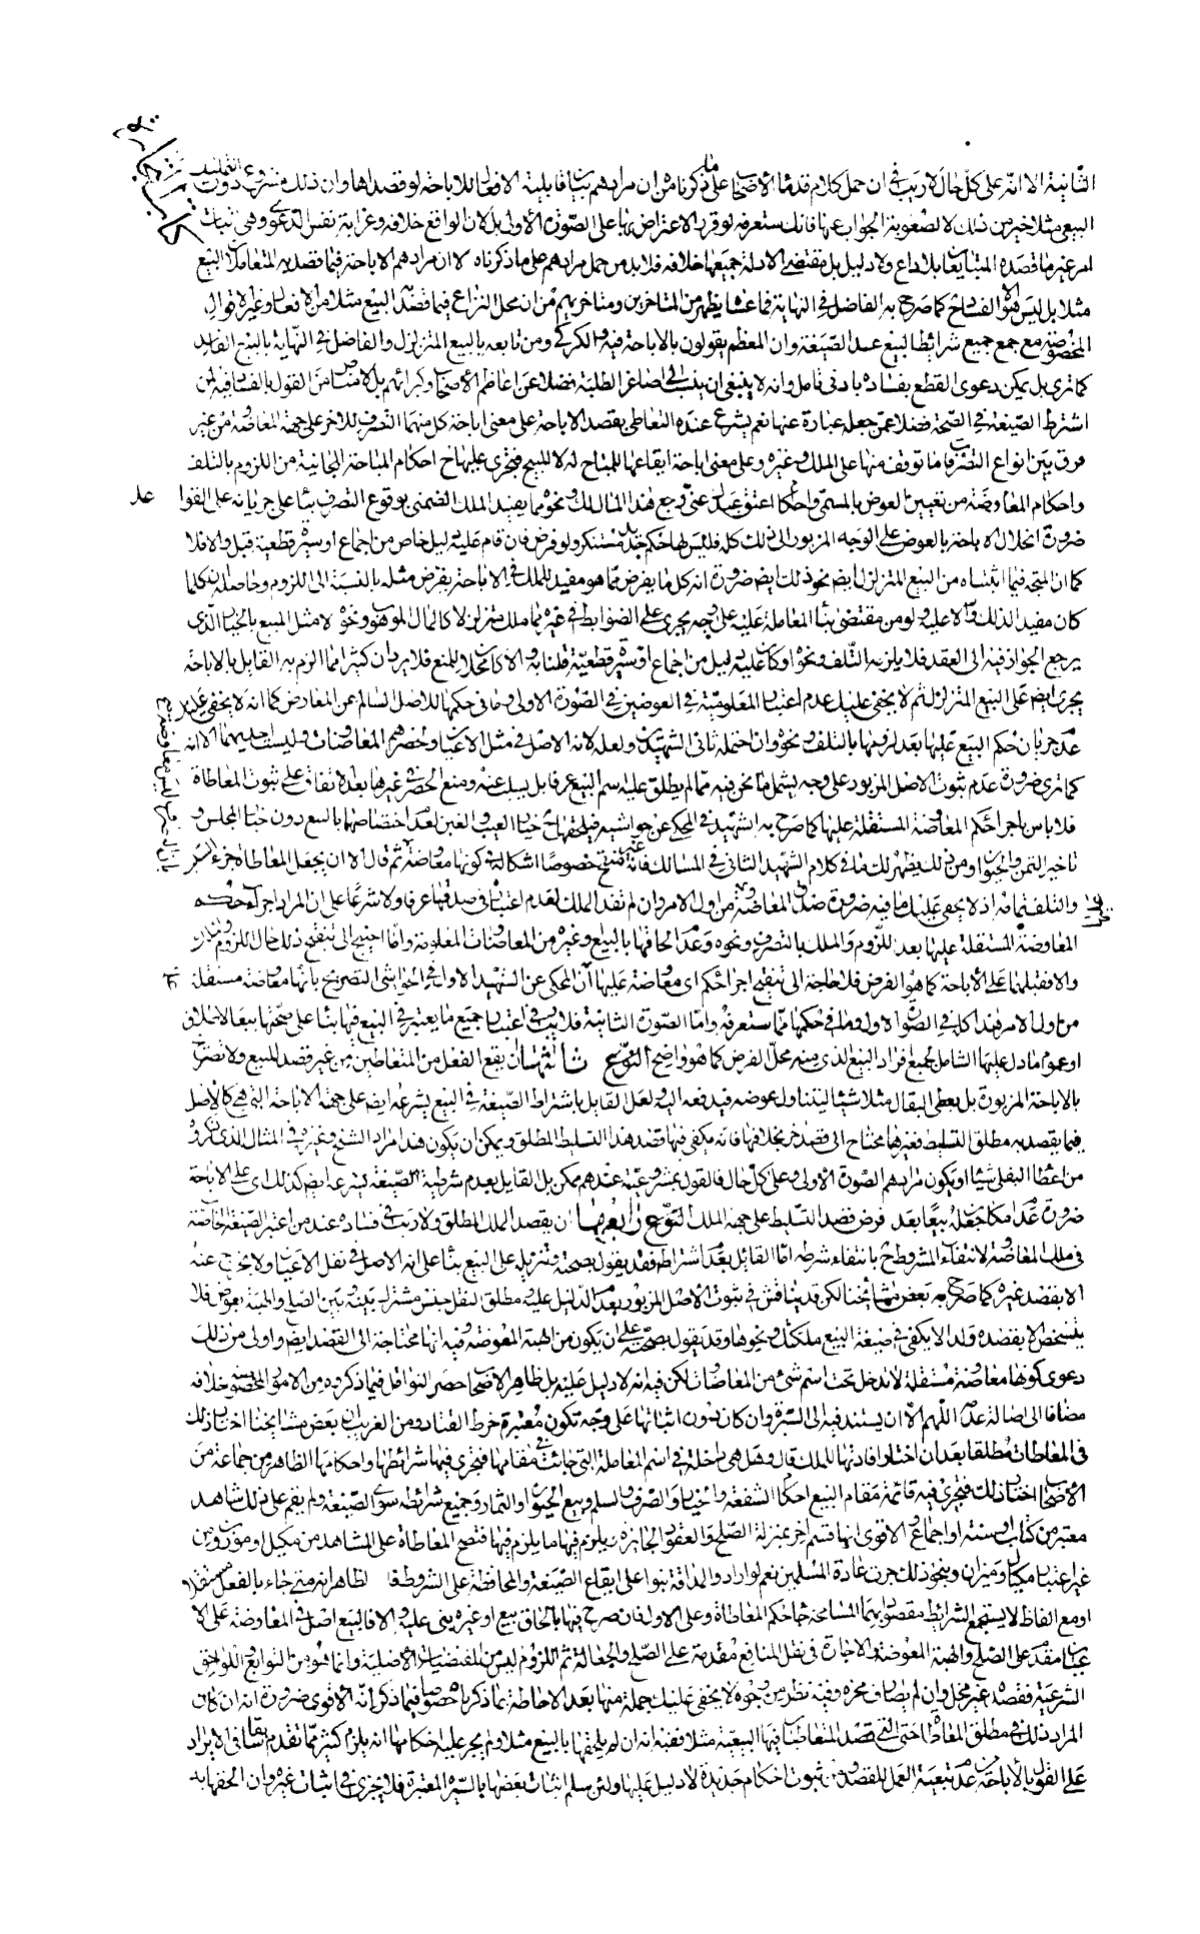 الثانية الا انه على كل حال لا ريب في ان حمل كلام قدماء الاصحاب على ما ذكرناه من ان مرادهم بيان قابلية الافعال للاباحة لو قصداها وان ذلك مشروع دون التمليك
البيعي مثلا خير من ذلك لا لصعوبة الجواب عنها فانك ستعرفه لو قرر الاعتراض بها على الصورة الأولى بل لان الواقع خلافه وغرابة نفس الدعوى وهي نيات
امر غير ما قصده المتبايعان بلا داع ولا دليل بل مقتضى الادلة جميعها خلافه فلا بد من حمل مرادهم على ما ذكرناه لا ان مرادهم الاباحة فيما قصد به المتعاملان البيع
مثلا بل ليس هو الا الفساد كما صرح به الفاضل في النهاية فما عساه يظهر من المتاخرين ومتاخريهم من ان محل النزاع فيما قصد البيع مثلا من الافعال وغير الاقوال
المخصوصة مع جمع جميع شرائط البيع عدا الصيغة وان المعظم يقولون بالاباحة فيه والكركي ومن تابعه بالبيع المتزلزل والفاضل في النهاية بالبيع الفاسد
كما ترى بل يمكن دعوى القطع بفساده بادنى تامل وانه لا ينبغي ان ينسب الى اصاغر الطلبة فضلا عن اعاظم الاصحاب وكبرائهم بل لا مناص من القول بالفساد فيه لمن
اشترط الصيغة في الصحة فضلا عمن جعله عبارة عنها نعم يشرع عنده التعاطي بقصد الاباحة على معنى اباحة كل منهما التصرف للاخر على جهة المعاوضة من غير
فرق بين انواع التصرف ما توقف منها على الملك وغيره وعلى معنى اباحة ايقاعها للمباح له لا للمبيح فتجري عليها ح احكام المباحة المجانية من اللزوم بالتلف
واحكام المعاوضة من تعيين العوض بالمسمى واحكام اعتق عبدك عني وبع هذا المال لك ونحوه مما يفيد الملك الضمني بوقوع التصرف بناء على جريانه على القواعد
ضرورة انحلال الاباحة بالعوض على الوجه المزبور الى ذلك كله فليس لها حكم جديد مستنكر ولو فرض فان قام عليه دليل خاص من اجماع او سيرة قطعية قبل والا فلا
كما ان المتجه فيما اثبتناه من البيع المتزلزل ايضا نحو ذلك ايضا ضرورة انه كل ما يفرض مما هو مفيد للملك في الاباحة يفرض مثله بالنسبة الى اللزوم وحاصله ان كلما
كان مفيدا لذلك والا عليه ولو من مقتضى بناء المعاملة عليه على وجه يجري على الضوابط في غيره مما ملك متزلزلا كالمال الموهوب ونحوه لا مثل المبيع بالخيار الذي
يرجع الجواز فيه الى العقد فلا يلزم به التلف ونحوه او كان عليه دليل من اجماع او سيرة قطعية قلنا به والا كان محلا للمنع فلا يرد ان كثيرا مما الزم به القايل بالاباحة
يجرى ايضا على البيع المتزلزل ثم لا يخفى عليك عدم اعتبار المعلومية في العوضين في الصورة الاولى وما في حكمها للاصل السالم عن المعارض كما انه لا يخفى عليك
عدم جريان حكم البيع عليها بعد لزومها بالتلف ونحوه وان احتمله ثاني الشهيدين ولعله لانه الاصل في مثل الاعيان وحصرهم المعاوضات وليست احديهما الا انه
كما ترى ضرورة عدم ثبوت الاصل المزبور على وجه يشمل ما نحن فيه مما لم يطلق عليه اسم البيع عرفا بل يسلب عنه ومنع الحصر في غيرها بعد الاتفاق على ثبوت المعاطاة
فلا باس باجراء حكم المعاوضة المستقلة عليها كما صرح به الشهيد في المحكي عن حواشيه فيلحقها ح خيار العيب والغبن لعدم اختصاصها بالبيع دون خيار المجلس و
تاخير الثمن والحيوان ومن ذلك يظهر لك ما في كلام الشهيد الثاني في المسالك فانه غير منقح خصوصا اشكاله في كونها معاوضة ثم قال الا ان يجعل المعاطاة جزء السبب
والتلف تمامه اذ لا يخفى عليك ما فيه ضرورة صدق المعاوضة من اول الامر وان لم تفد الملك لعدم اعتباره في صدقها عرفا ولا شرعا على ان المراد اجراء حكم
المعاوضة المستقلة عليها بعد اللزوم والملك بالتصرف ونحوه وعدم الحاقها بالبيع وغيره من المعاوضات المعلومة وانما احتيج الى تنقيح ذلك حال اللزوم
والا فقبلها على الأباحة كما هو الفرض فلا حاجة الى تنقيح اجراء حكم اى معاوضة عليها الان المحكى عن الشهيد الاول في الحواشي التصريح بانها معاوضة مستقلة
من اول الامر هذا كله في الصورة الاولى وما في حكمها مما ستعرفه واما الصورة الثانية فلا ريب في اعتبار جميع ما يعتبر في البيع فيها بناء على صحتها بيعا لاطلاق
او عموم ما دل عليها الشامل لجميع افراد البيع الذي منه محل الفرض كما هو واضح النوع ثالثها ان يقع الفعل من المتعاطين من غير قصد للبيع ولا تصريح
بالاباحة المزبورة بل يعطي البقال مثلا شيئا ليتناول عوضه فيدفعه اليه ولعل القايل باشتراط الصيغة في البيع يشرعه ايضا على جهة الاباحة التي هي كالاصل
فيما يقصد به مطلق التسليط فغيرها محتاج الى قصد اخر بخلافها فانه يكفي فيها قصد هذا التسليط المطلق ويمكن ان يكون هذا مراد الشيخ وغيره في المثال الذي ذكروه
من اعطاء البقلي شيئا او يكون مرادهم الصورة الاولى وعلى كل حال فالقول بمشروعيته عندهم ممكن بل القايل بعدم شرطية الصيغة يشرعه ايضا كذلك اى على الاباحة
ضرورة عدم امكان جعله بيعا بعد فرض قصد التسليط على جهة الملك النوع رابعها ان يقصد الملك المطلق ولا ريب في فساده عند من اعتبر الصيغة خاصة
في ملك المعاوضة لانتفاء المشروط ح بانتفاء شرطه اما القائل بعدم اشتراطه فقد يقول بصحته وتنزيله على البيع بناء على انه الاصل في نقل الاعيان ولا يخرج عنه
الا بقصد غيره كما صرح به بعض مشائخنا لكن قد يناقش في ثبوت الاصل المزبور بعدم الدليل عليه ومطلق النقل جنس مشترك بينه وبين الصلح والهبة بعوض فلا
يتشخص الا بقصده ولذا لا يكفي في صيغة البيع ملكتك ونحوها وقد يقول بصحته على ان يكون من الهبة المعوضة وفيه انها محتاجة الى القصد ايضا واولى من ذلك
دعوى كونها معاوضة مستقلة لا تدخل تحت اسم شئ من المعاوضات لكن فيه انه لا دليل عليه بل ظاهر الاصحاب حصر النواقل فيما ذكروه من الامور المخصوصة خلافه
مضافا الى اصالة عدمه اللهم الا ان يستند فيه الى السيرة وان كان بدون اثباتها على وجه تكون معتبرة خرط القتاد ومن الغريب ان بعض مشايخنا اختار ذلك
في المعاطات مطلقا بعد ان اختار افادتها للملك قال وهل هي داخلة في اسم المعاملة التي جائت في مقامها فتجري فيها شرائطها واحكامها الظاهر من جماعة من
الاصحاب اختيار ذلك فتجري فيه قائمة مقام البيع احكام الشفعة والخيار والصرف والسلم وبيع الحيوان والثمار وجميع شرائطه سوى الصيغة ولم يقم على ذلك شاهد
معتبر من كتاب او سنة او اجماع والاقوى انها قسم اخر بمنزلة الصلح والعقود الجائزة يلزم فيها ما يلزم فيها فتصح المعاطاة على المشاهد من مكيل او موزون من
غير اعتبار مكيال وميزان وبنحو ذلك جرت عادة المسلمين نعم لو ارادوا المداقة بنوا على ايقاع الصيغة والمحافظة على الشروط فالظاهر انه متى جاء بالفعل مستقلا
او مع الفاظ لا يستجمع الشرائط مقصودا بهما المسامحة جاء حكم المعاطاة وعلى الاول فان صرح فيها بالحاق بيع او غيره بنى عليه والا فالبيع اصل في المعاوضة على الا
عيان مقدم على الصلح والهبة المعوضة والاجارة في نقل المنافع مقدمة على الصلح والجعالة ثم اللزوم ليس من المقتضيات الاصلية وانما هو من التوابع اللواحق
الشرعية فقصده غير مخل وان لم يصادف محزه وفيه نظر من وجوه لا يخفى عليك جملة منها بعد الاحاطة بما ذكرناه خصوصا فيما ذكر انه الاقوى ضرورة انه ان كان
المراد ذلك في مطلق المعاطاة حتى التي قصد المتعاطيان فيها البيعية مثلا ففيه انه ان لم يلحقها بالبيع مثلا ولم يجر عليه احكامها انه يلزم كثير مما تقدم سابقا في الايراد
على القول بالأباحة من عدم تبعية العمل للقصد ومن ثبوت احكام جديدة لا دليل عليها ولئن سلم اثبات بعضها بالسيرة المعتبرة فلا يجزى في اثبات غيره وان الحقها به